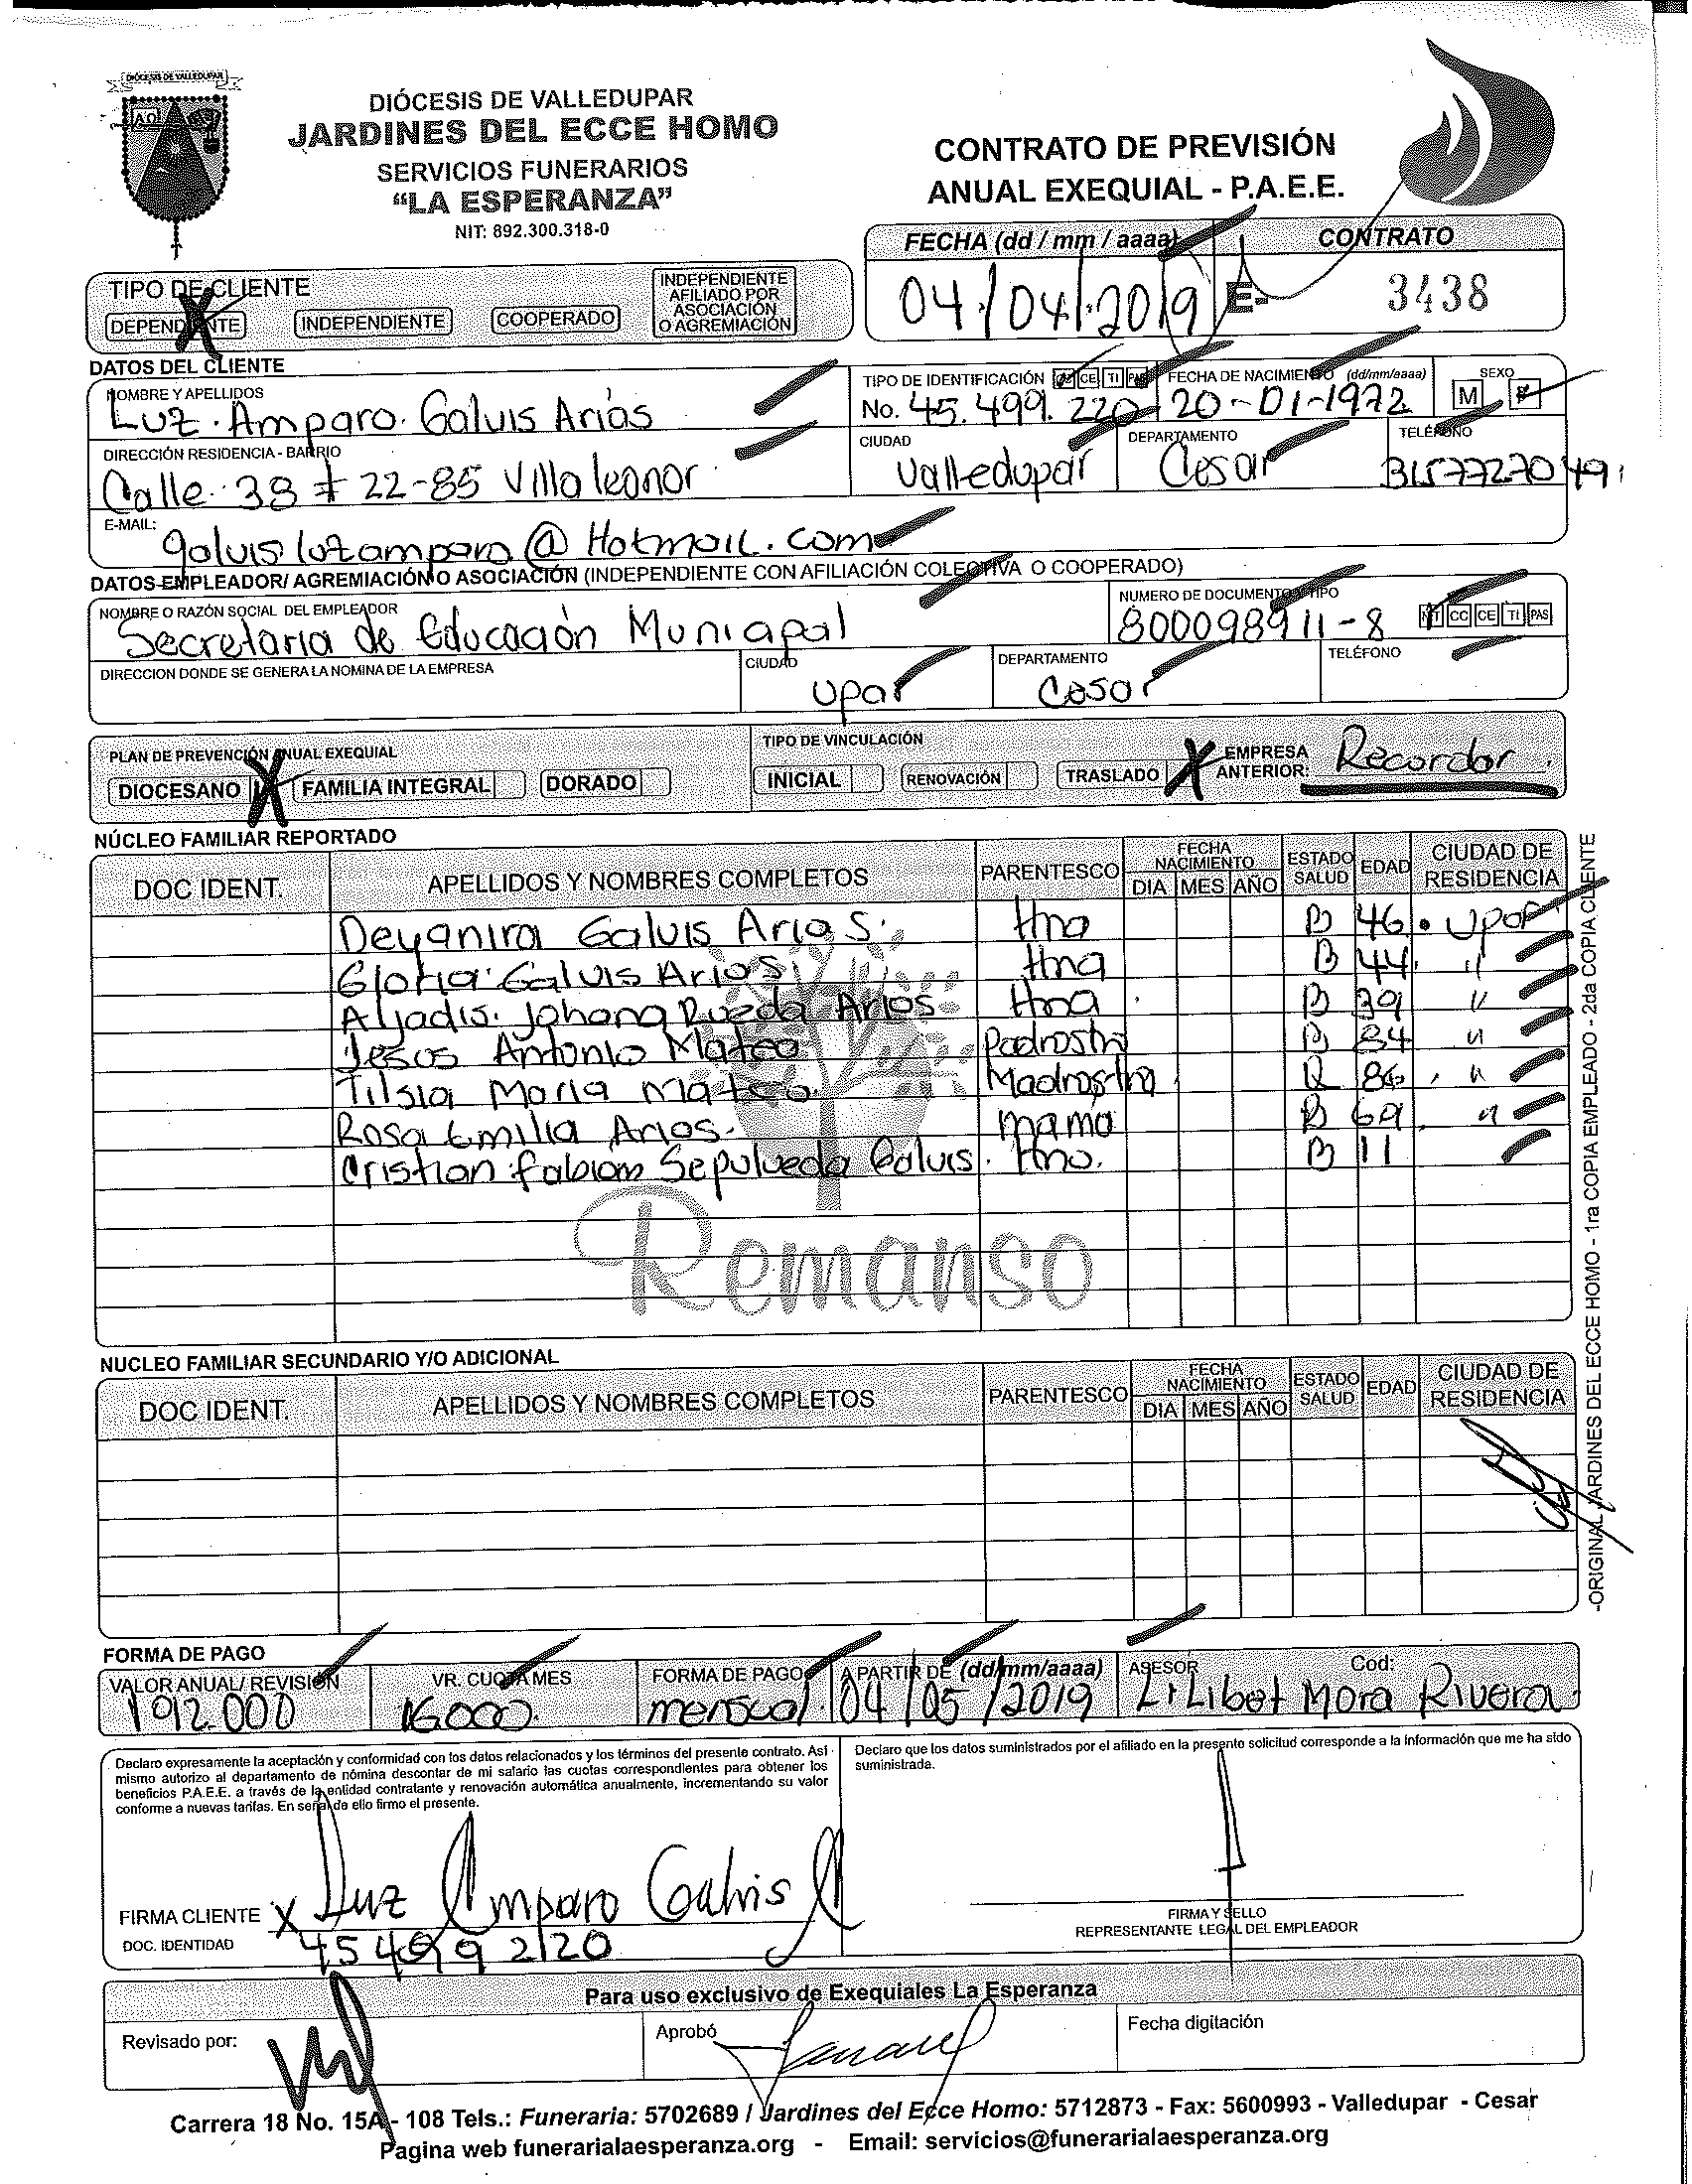 DIÓCESIS DE VALLEDUPAR
DIÓCESIS DE VALLEDUPAR
JARDINES DEL ECCE HOMO
SERVICIOS FUNERARIOS
“LA ESPERANZA”
NIT: 892.300.318-0
CONTRATO DE PREVISIÓN
ANUAL EXEQUIAL - P.A.E.E.
FECHA (dd / mm / aaaa) CONTRATO
04/04/2019 E- 3438
TIPO DE CLIENTE
DEPENDIENTE INDEPENDIENTE COOPERADO INDEPENDIENTE AFILIADO POR ASOCIACIÓN O AGREMIACIÓN
DATOS DEL CLIENTE
NOMBRE Y APELLIDOS
Luz. Amparo. Galvis Arias
TIPO DE IDENTIFICACIÓN CC CE TI PAS FECHA DE NACIMIENTO (dd/mm/aaaa) SEXO
No. 45.499.220 20-01-1972 M F
DIRECCIÓN RESIDENCIA - BARRIO CIUDAD DEPARTAMENTO TELÉFONO
Calle 38 # 22-85 Villa leonor Valledupar Cesar 3157727049
E-MAIL:
galvisluzamparo@Hotmail.com
DATOS EMPLEADOR/ AGREMIACIÓN O ASOCIACIÓN (INDEPENDIENTE CON AFILIACIÓN COLECTIVA O COOPERADO)
NOMBRE O RAZÓN SOCIAL DEL EMPLEADOR NUMERO DE DOCUMENTO Y TIPO
Secretaria de Educación Municipal 800098911-8 NIT CC CE TI PAS
DIRECCION DONDE SE GENERA LA NOMINA DE LA EMPRESA CIUDAD DEPARTAMENTO TELÉFONO
Upar Cesar
PLAN DE PREVENCIÓN ANUAL EXEQUIAL TIPO DE VINCULACIÓN
DIOCESANO X FAMILIA INTEGRAL DORADO INICIAL RENOVACIÓN TRASLADO X EMPRESA ANTERIOR: Recordar.
NÚCLEO FAMILIAR REPORTADO
DOC IDENT. APELLIDOS Y NOMBRES COMPLETOS PARENTESCO FECHA NACIMIENTO DIA MES AÑO ESTADO SALUD EDAD CIUDAD DE RESIDENCIA
Deyanira Galvis Arias. Hna B 46 Upar
Gloria Galvis Arias. Hna B 44 "
Aljadis. Johana Rueda Arias Hna B 39 "
Jesus Antonio Mateo Padrastro B 84 "
Tilsia Maria Mateo. Madrastra B 86 "
Rosa Emilia Arias. Mama B 69 "
Cristian Fabian Sepulveda Galvis. Hno. B 11
Remanso
NUCLEO FAMILIAR SECUNDARIO Y/O ADICIONAL
DOC IDENT. APELLIDOS Y NOMBRES COMPLETOS PARENTESCO FECHA NACIMIENTO DIA MES AÑO ESTADO SALUD EDAD CIUDAD DE RESIDENCIA
-ORIGINAL JARDINES DEL ECCE HOMO - 1ra COPIA EMPLEADO - 2da COPIA CLIENTE
FORMA DE PAGO
VALOR ANUAL/ REVISIÓN VR. CUOTA MES FORMA DE PAGO A PARTIR DE (dd/mm/aaaa) ASESOR Cod:
192.000 16.000 mensual. 04/05/2019 Lilibet Mora Rivera
Declaro expresamente la aceptación y conformidad con los datos relacionados y los términos del presente contrato. Asi
mismo autorizo al departamento de nómina descontar de mi salario las cuotas correspondientes para obtener los
beneficios P.A.E.E. a través de la entidad contratante y renovación automática anualmente, incrementando su valor
conforme a nuevas tarifas. En señal de ello firmo el presente.
Declaro que los datos suministrados por el afiliado en la presente solicitud corresponde a la información que me ha sido
suministrada.
FIRMA CLIENTE X Luz Amparo Galvis A
DOC. IDENTIDAD 45499220
FIRMA Y SELLO
REPRESENTANTE LEGAL DEL EMPLEADOR
Para uso exclusivo de Exequiales La Esperanza
Revisado por: Aprobó Fecha digitación
Carrera 18 No. 15A - 108 Tels.: Funeraria: 5702689 / Jardines del Ecce Homo: 5712873 - Fax: 5600993 - Valledupar - Cesar
Pagina web funerarialaesperanza.org - Email: servicios@funerarialaesperanza.org